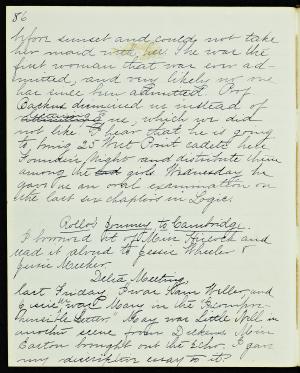 86
before sunset and could not take
her maid with her. She was the
first woman that was ever ad-
mitted, and very likely no one
has since been admitted. Prof
Backus dismissed us instead of
hearing us, which we did
not like. I hear that he is going
to bring 25 West Point cadets here
Founder's Night and distribute them
among the girls. Wednesday he
gave us an oral examination on
the last six chapters in Logic.
Rollo's Journey to Cambridge.
I borrowed it of Miss and
read it aloud to Jessie Wheeler &
Jessie Meeker.
Delta Meeting.
last Sunday. It was and
Elsie was Mary in the
Invisible Letter." May was Little Nell in
another scene from Dickens. Miss
Easton brought out the Echo. I gave
my descriptive essay to it.